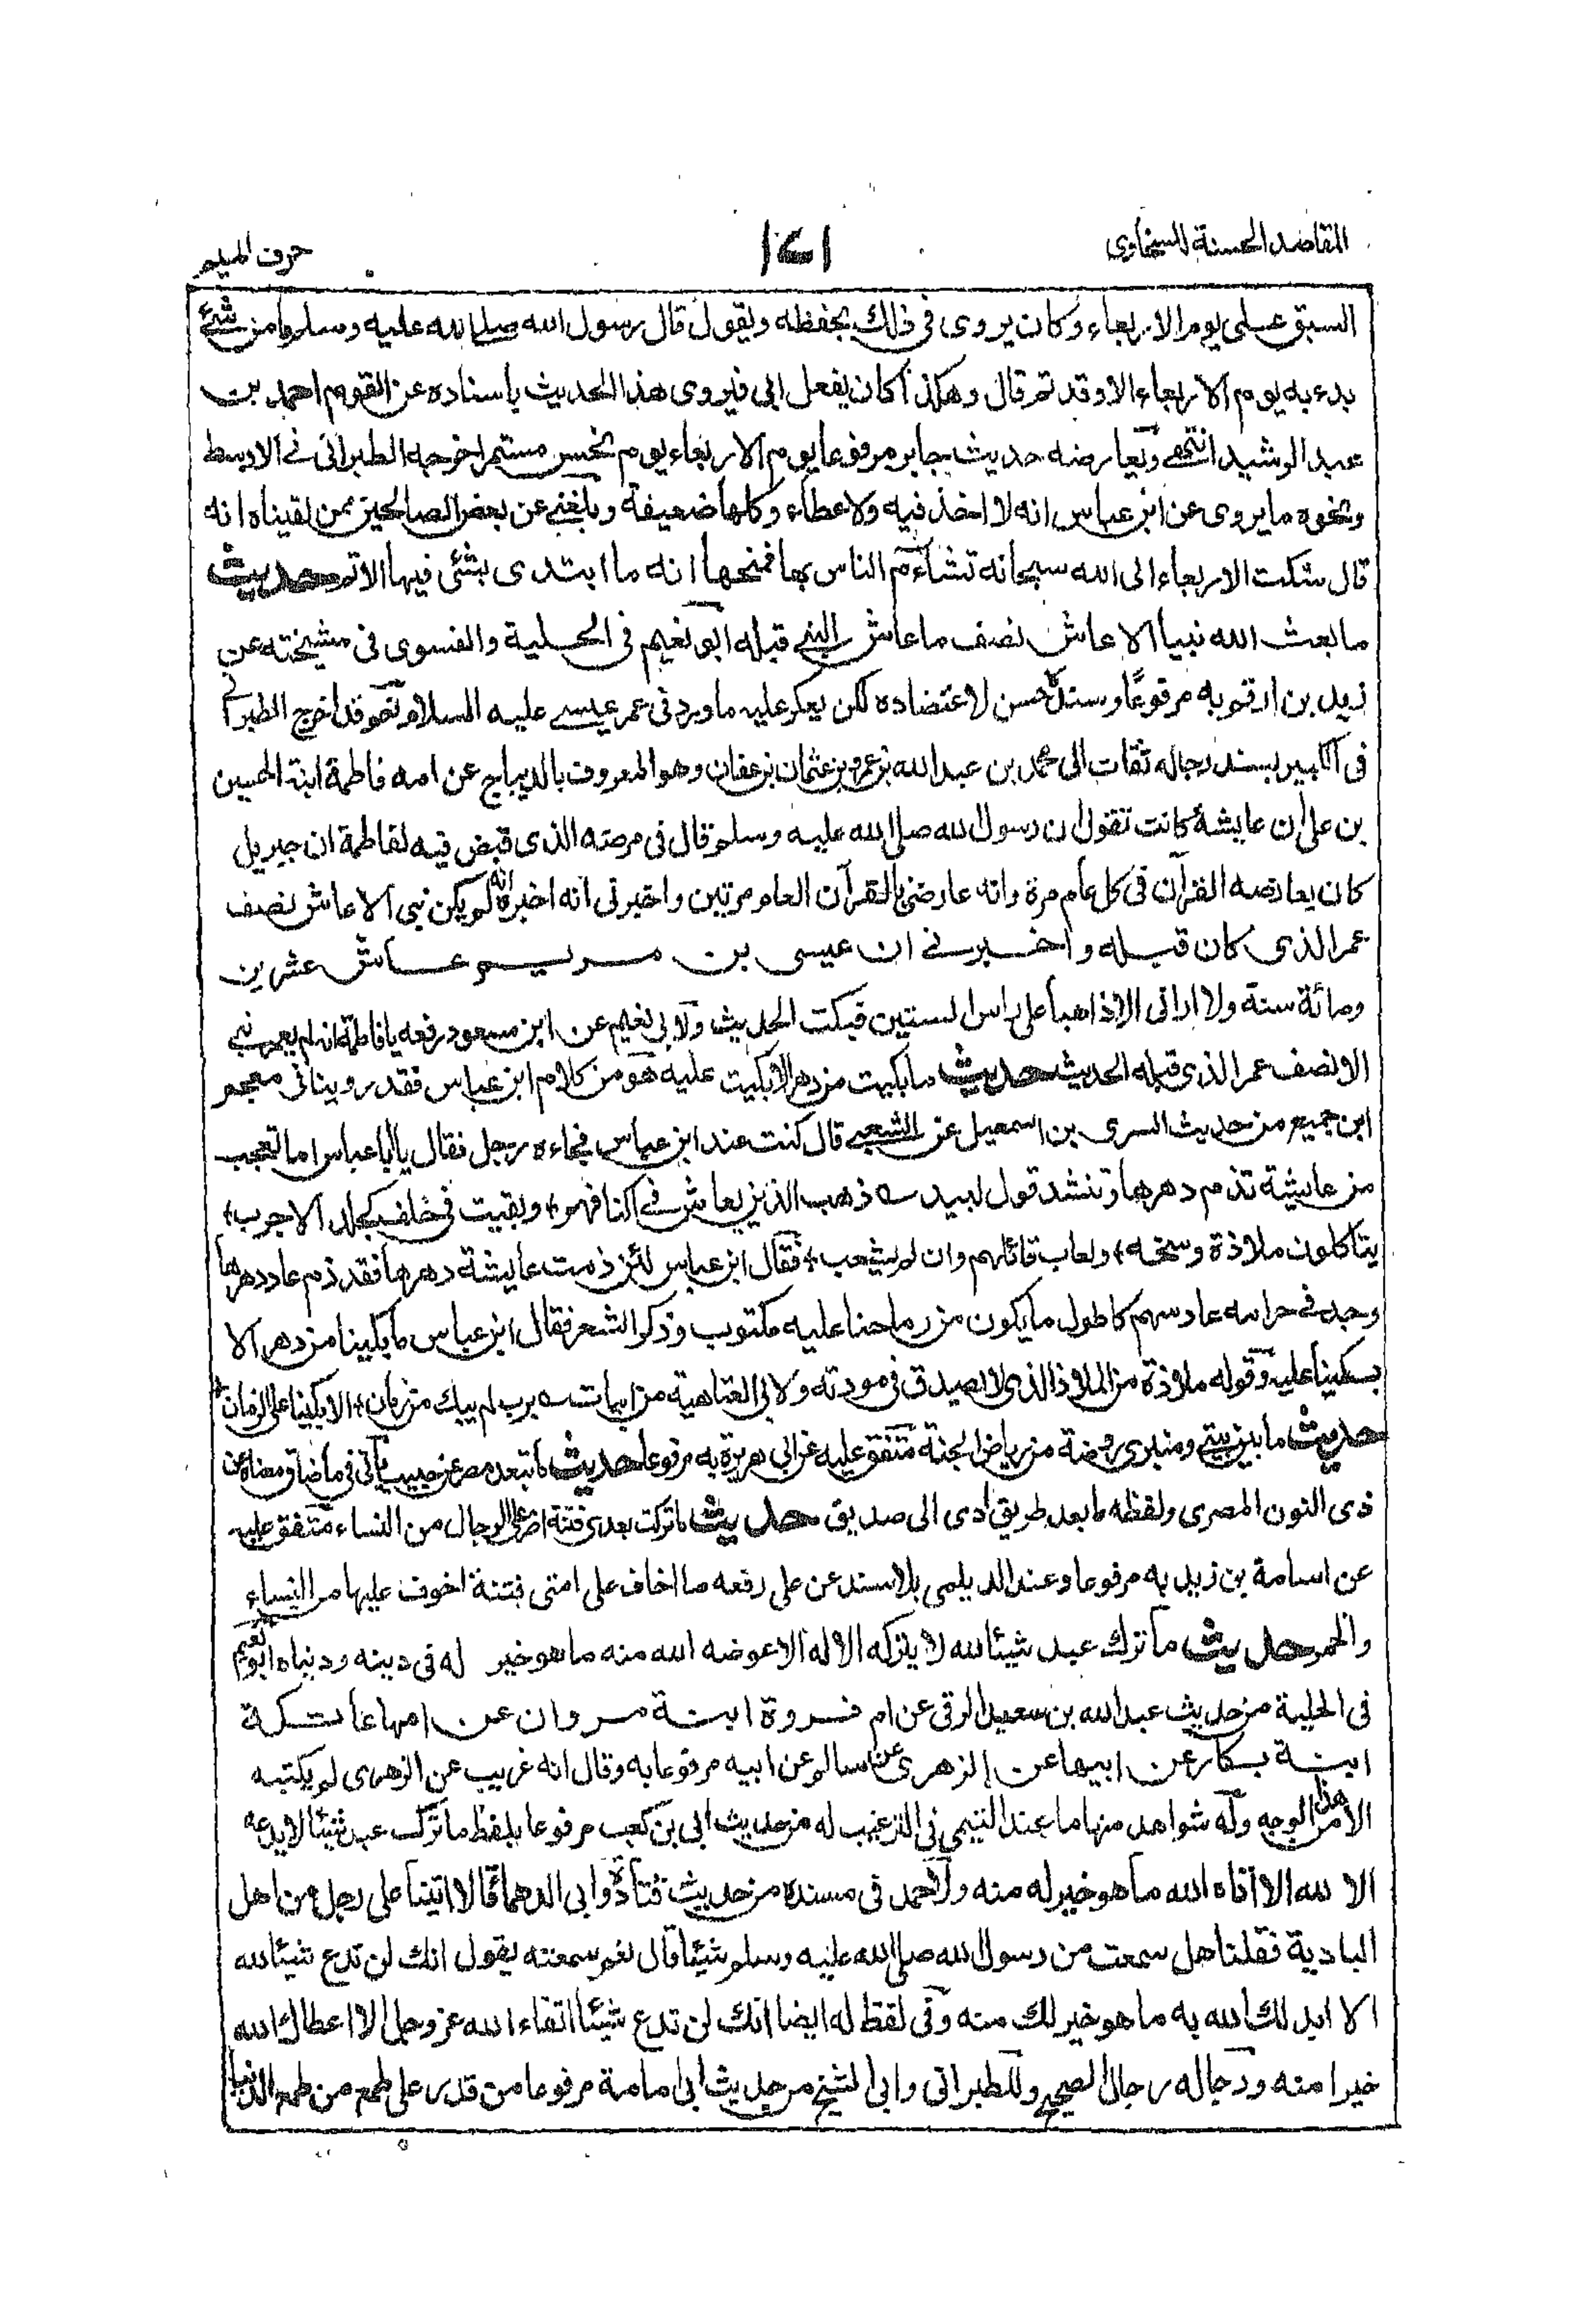 المقاصد الحسنة للسخاوى
حرف الميم
السبق على يوم الاربعاء وكان يروى فى ذلك بحفظه ويقول قال رسول الله صلى الله عليه وسلم ما من شئ
بدء به يوم الاربعاء الا وقد تم قال وهكذا كان يفعل ابى فيروى هذا الحديث باسناده عن القوام احمد بن
عبد الرشيد انتهى ويعارضه حديث جابر مرفوعا يوم الاربعاء يوم نحس مستمر اخرجه الطبرانى فى الاوسط
ونحوه ما يروى عن ابن عباس انه لا اخذ فيه ولا عطاء وكلها ضعيفة وبلغنى عن بعض الصالحين ممن لقيناه انه
قال شكت الاربعاء الى الله سبحانه تشاءم الناس بها فمنحها انه ما ابتدى بشئ فيها الا تم حديث
ما بعث الله نبيا الا عاش نصف ما عاش النبى قبله ابو نعيم فى الحلية والفسوى فى مشيخته عن
زيد بن ارقم به مرفوعًا وسنده حسن لاعتضاده لكن يعكر عليه ما ورد فى عمر عيسى عليه السلام نحو فقد اخرج الطبرانى
فى الكبير بسند رجاله ثقات الى محمد بن عبد الله بن عمرو بن عثمان بن عفان وهو المعروف بالديباج عن امه فاطمة ابنة الحسين
بن على ان عايشة كانت تقول ان رسول الله صلى الله عليه وسلم قال فى مرضه الذى قبض فيه لفاطمة ان جبريل
كان يعارضه القرآن فى كل عام مرة وانه عارضنى بالقرآن العام مرتين واخبرنى انه اخبره انه لم يكن نبى الا عاش نصف
عمر الذى كان قبله واخبرنى ان عيسى بن مريم عاش عشرين
ومائة سنة ولا ارانى الا ذاهبا على راس الستين فبكت الحديث ولابى نعيم عن ابن مسعود رفعه يا فاطمة انه لم يعمر نبى
الا نصف عمر الذى قبله الحديث حديث ما بكيت من دهر الا بكيت عليه هو من كلام ابن عباس فقد روينا فى معجم
ابن جميع من حديث السرى بن اسمعيل عن الشعبى قال كنت عند ابن عباس فجاءه رجل فقال يا ابا عباس اما تعجب
من عايشة تذم دهرها وتنشد قول لبيد ؎ ذهب الذين يعاش فى اكنافهم + وبقيت فى خلف كجلد الاجرب +
يتاكلون ملاذة وسخة + ويعاب قائلهم وان لم يشعب + فقال ابن عباس لئن ذمت عايشة دهرها فقد ذم عاد دهرها
وجد فى خزانه عاد سهم كاطول ما يكون من رماحنا عليه مكتوب وذكر الشعر فقال ابن عباس ما بكينا من دهر الا
بكينا عليه وقوله ملاذة من الملاذ الذى لا يصدق فى مودته ولابى العتاهية من ابيات ؎ برب لم يبك من زمان + الا بكينا على الزمان +
حديث ما بين بيتى ومنبرى روضة من رياض الجنة متفق عليه عن ابى هريرة به مرفوعا حديث ما تبعد مصر عن حبيب ياتى فى ما ضاق ومعناه عن
ذى النون المصرى ولفظه ما بعد طريق ادى الى صديق حديث ما تركت بعدى فتنة اضر على الرجال من النساء متفق عليه
عن اسامة بن زيد به مرفوعا وعند الديلمى بلا سند عن على رفعه ما اخاف على امتى فتنة اخوف عليها من النساء
والخمر حديث ما ترك عبد شيئا لله لا يتركه الا له الا عوضه الله منه ما هو خير له فى دينه ودنياه ابو نعيم
فى الحلية من حديث عبد الله بن سعيد الرقى عن ام فروة ابنة مروان عن امها عاتكة
ابنة بكار عن ابيها عن الزهرى عن سالم عن ابيه مرفوعا به وقال انه غريب عن الزهرى لم يكتبه
الا من هذا الوجه وله شواهد منها ما عند التيمى فى الترغيب له من حديث ابى بن كعب مرفوعا بلفظ ما ترك عبد شيئا لا يدعه
الا لله الا آتاه الله ما هو خير له منه ولاحمد فى مسنده من حديث قتادة وابى الدهماء قالا اتينا على رجل من اهل
البادية فقلنا هل سمعت من رسول الله صلى الله عليه وسلم شيئا قال نعم سمعته يقول انك لن تدع شيئا لله
الا ابدلك الله به ما هو خير لك منه وفى لفظ له ايضا انك لن تدع شيئا اتقاء الله عز وجل الا اعطاك الله
خيرا منه ورجاله رجال الصحيح وللطبرانى وابى الشيخ من حديث ابى امامة مرفوعا من قدر على طمع من طمع الدنيا